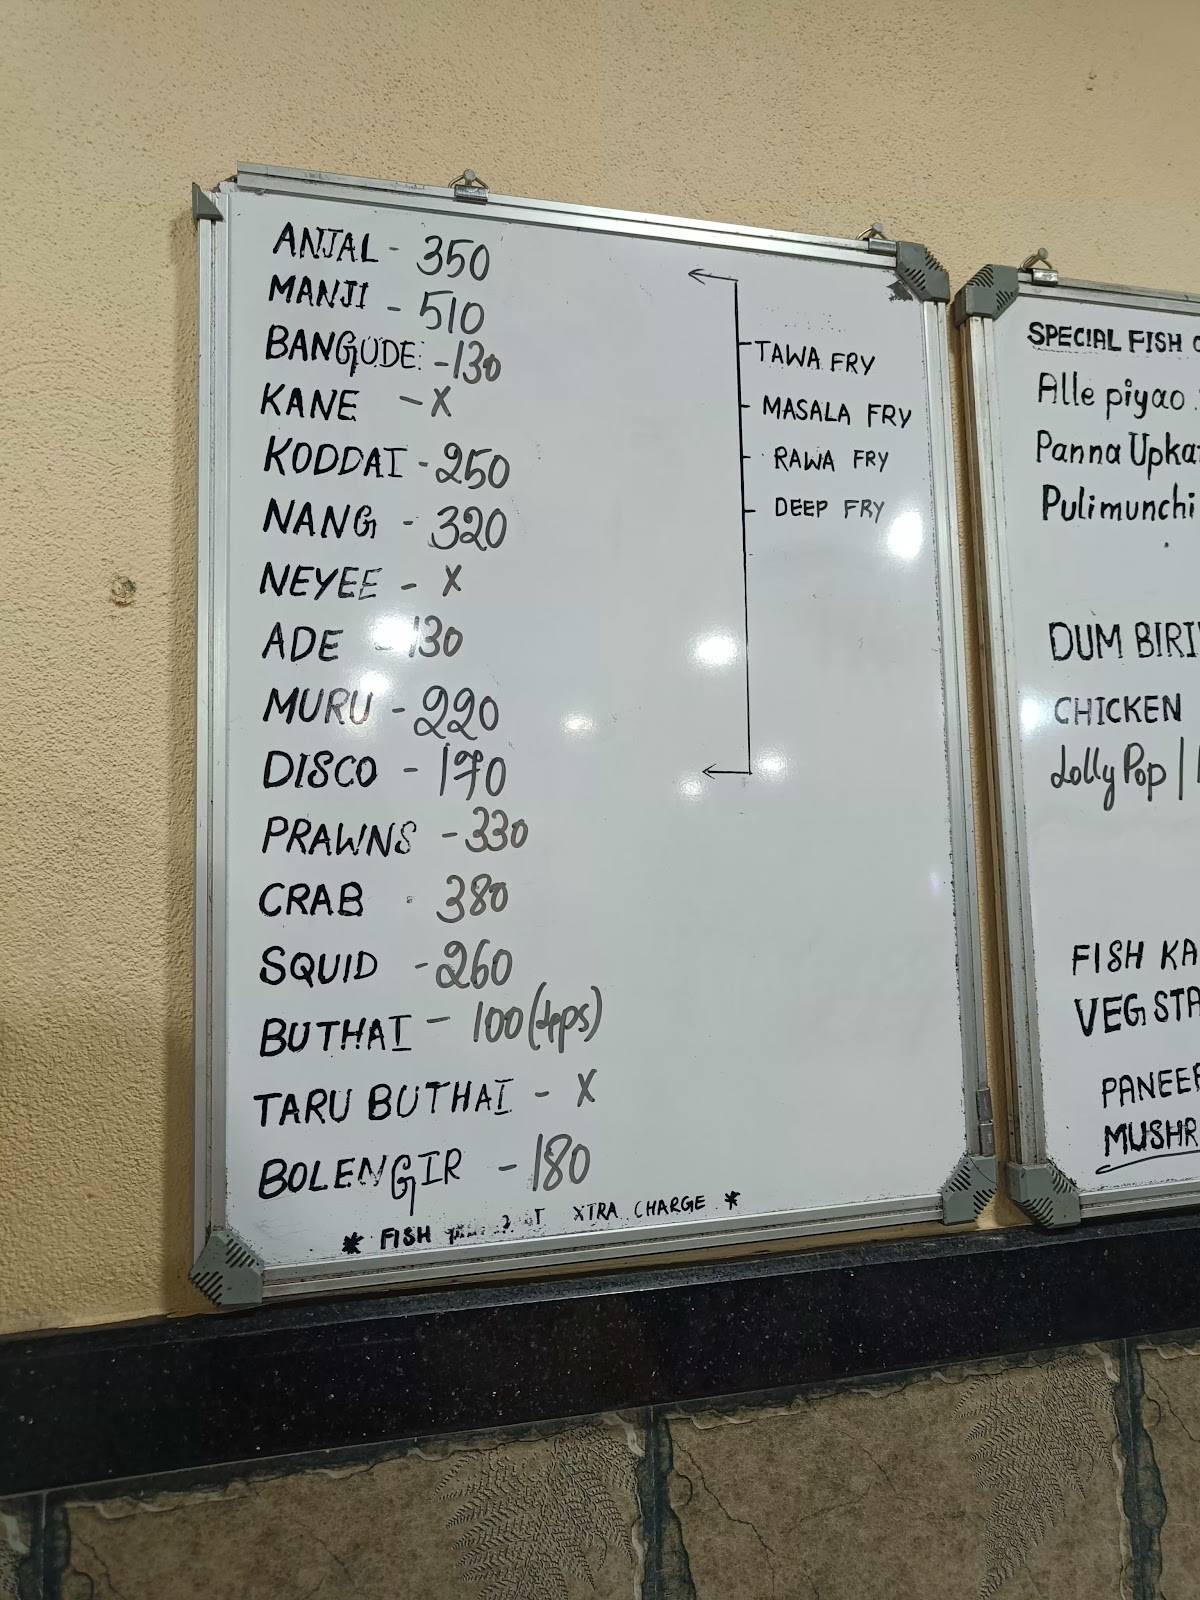 ANJAL - 350
MANJI - 510
BANGUDE - 130
KANE - X
KODDAI - 250
NANG - 320
NEYEE - X
ADE - 130
MURU - 220
DISCO - 170
PRAWNS - 330
CRAB - 380
SQUID - 260
BUTHAI - 100
TARU BUTHAI - X
BOLENGIR - 180
* FISH XTRA CHARGE *
TAWA FRY
MASALA FRY
RAWA FRY
DEEP FRY
SPECIAL FISH
Alle piyao
Panna Upka
Pulimunchi
DUM BIRI
CHICKEN
Lolly Pop |
FISH KA
VEG STA
PANEE
MUSHR